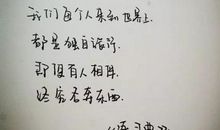 我们每个人来到世界上
都是独自旅行
即便有人相伴
终究各奔东西